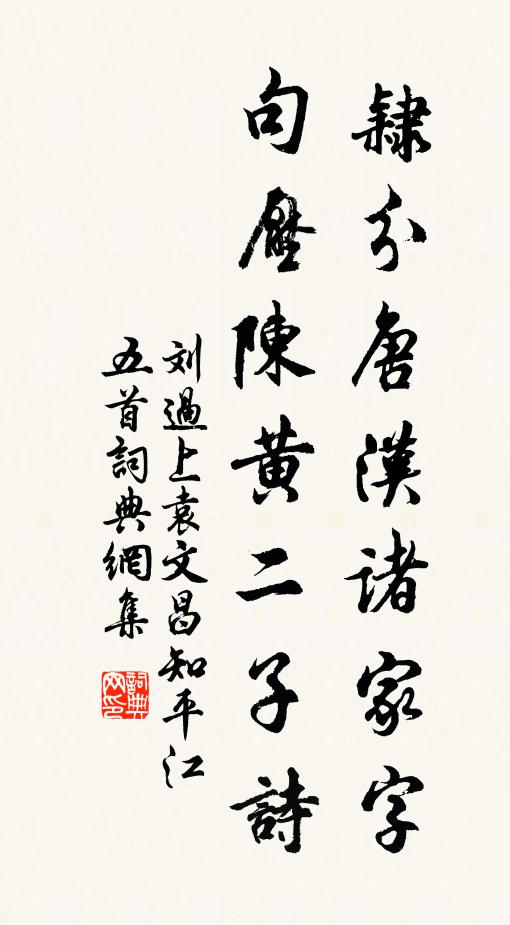 隸分唐漢諸家字
句壓陳黃二子詩
刘過上袁文昌知平江
五首詞典網集
詞典网印